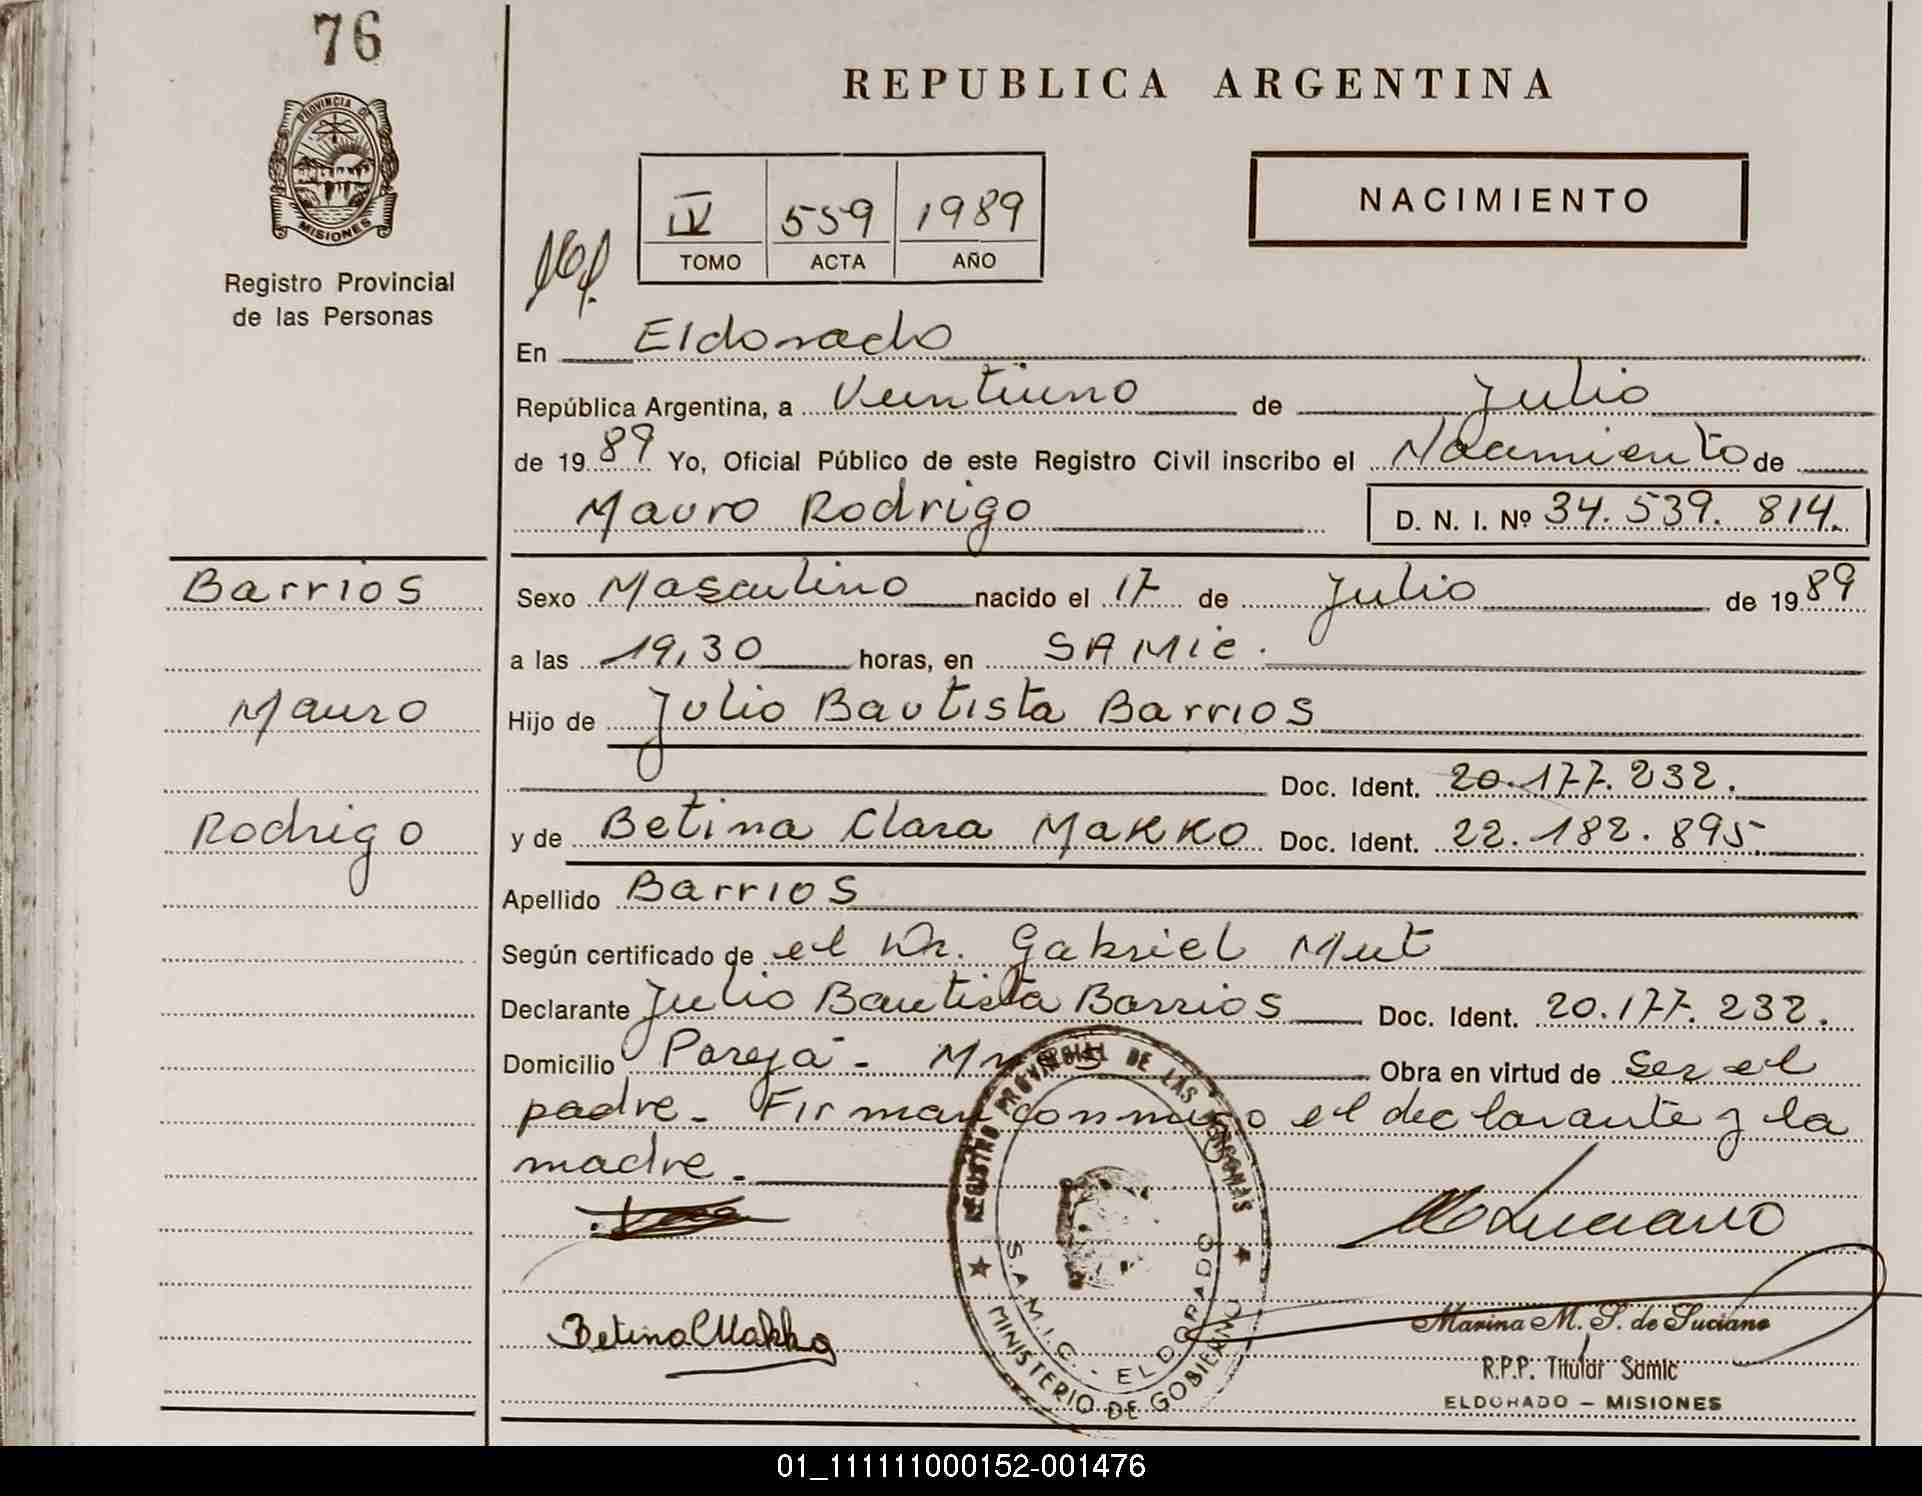 76
PROVINCIA DE
MISIONES
Registro Provincial
de las Personas
REPUBLICA ARGENTINA
NACIMIENTO
IV 559 1989
TOMO ACTA AÑO
En Eldorado
República Argentina, a Veintiuno de Julio
de 1989 Yo, Oficial Público de este Registro Civil inscribo el Nacimiento de
Mauro Rodrigo D. N. I. Nº 34.539.814.
Barrios
Mauro
Rodrigo
Sexo Masculino nacido el 17 de Julio de 1989
a las 19,30 horas, en SAMIC.
Hijo de Julio Bautista Barrios
Doc. Ident. 20.177.232.
y de Betina Clara Makko Doc. Ident. 22.182.895.
Apellido Barrios
Según certificado de el Dr. Gabriel Mut
Declarante Julio Bautista Barrios Doc. Ident. 20.177.232.
Domicilio Pareja - Obra en virtud de ser el
padre - Firman conmigo el declarante y la
madre -
REGISTRO PROVINCIAL DE LAS PERSONAS
S.A.M.I.C. - ELDORADO
MINISTERIO DE GOBIERNO
Luciano
Betina Makko
Marina M. S. de Luciano
R.P.P. Titular Samic
ELDORADO - MISIONES
01_111111000152-001476